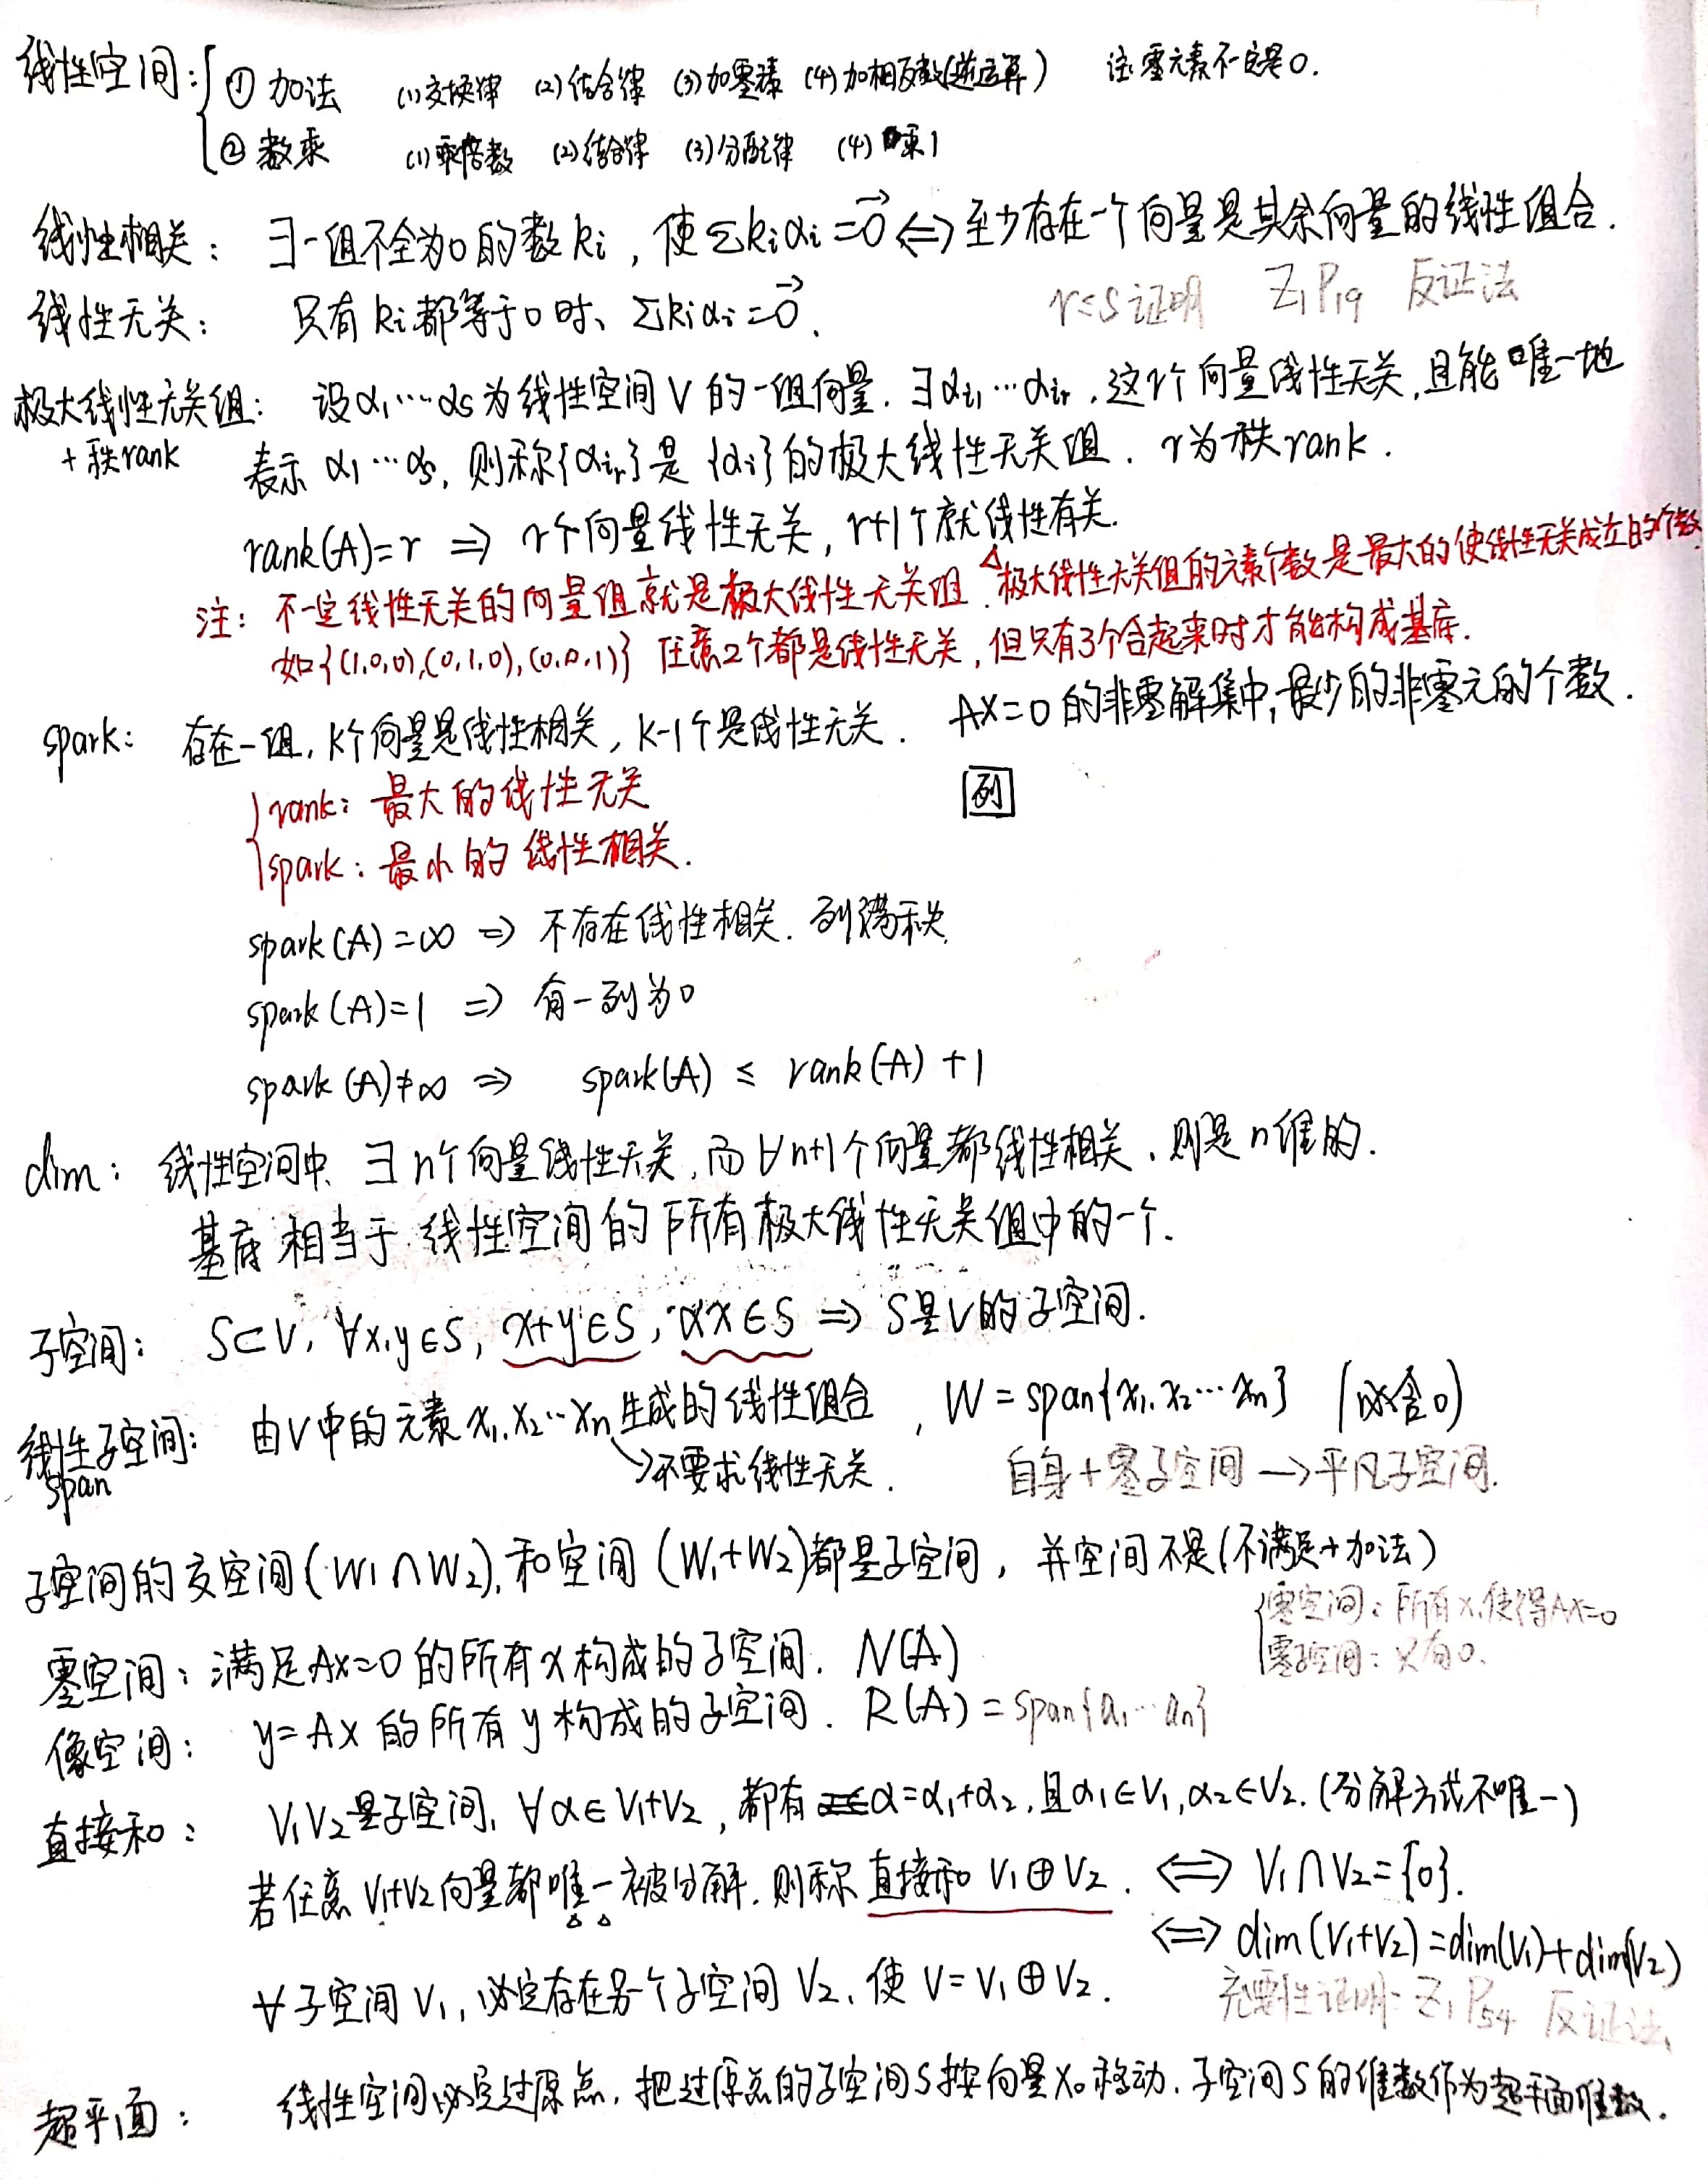 线性空间: ① 加法 (1)交换律 (2)结合律 (3)加零元素 (4)加相反数(逆运算) 注:零元素不一定是0.
② 数乘 (1)乘倍数 (2)结合律 (3)分配律 (4)乘1
线性相关: ∃一组不全为0的数ki, 使Σkiαi=0⃗ ⟺ 至少存在一个向量是其余向量的线性组合.
线性无关: 只有ki都等于0时、Σkiαi=0⃗. r≤s证明 Z1P19 反证法
极大线性无关组: 设α1…αs为线性空间V的一组向量. ∃αi1…αir, 这r个向量线性无关,且能唯一地
+秩rank 表示α1…αs, 则称{αir}是{αi}的极大线性无关组. r为秩rank.
rank(A)=r ⇒ r个向量线性无关, r+1个就线性有关.
注: 不一定线性无关的向量组就是极大线性无关组. △极大线性无关组的元素个数是最大的使线性无关成立的个数
如{(1,0,0),(0,1,0),(0,0,1)} 任意2个都是线性无关, 但只有3个合起来时才能构成基底.
spark: 存在一组, K个向量是线性相关, K-1个是线性无关. AX=0的非零解集中,最少的非零元的个数.
rank: 最大的线性无关 列
spark: 最小的线性相关.
spark(A)=∞ ⇒ 不存在线性相关. 列满秩
spark(A)=1 ⇒ 有一列为0
spark(A)≠∞ ⇒ spark(A) ≤ rank(A)+1
dim: 线性空间中、∃n个向量线性无关, 而∀n+1个向量都线性相关, 则是n维的.
基底相当于线性空间的所有极大线性无关组中的一个.
子空间: S⊂V, ∀x,y∈S, x+y∈S, αx∈S ⇒ S是V的子空间.
线性子空间: 由V中的元素x1,x2…xn生成的线性组合, W=span{x1,x2…xn} (必含0)
span ↘不要求线性无关. 自身+零子空间→平凡子空间.
子空间的交空间(W1∩W2),和空间(W1+W2)都是子空间, 并空间不是(不满足+加法)
零空间: 所有x,使得Ax=0
零子空间: 只有0.
零空间: 满足Ax=0的所有x构成的子空间. N(A)
像空间: y=Ax的所有y构成的子空间. R(A)=span{a1…an}
直接和: V1V2是子空间, ∀α∈V1+V2, 都有α=α1+α2, 且α1∈V1,α2∈V2. (分解方式不唯一)
若任意V1+V2向量都唯一被分解, 则称直接和V1⊕V2. ⟺ V1∩V2={0}.
⟺ dim(V1+V2)=dim(V1)+dim(V2)
∀子空间V1, 必定存在另一个子空间V2, 使V=V1⊕V2. 充要性证明: Z1P54 反证法
超平面: 线性空间必定过原点, 把过原点的子空间S按向量X0移动. 子空间S的维数作为超平面维数.